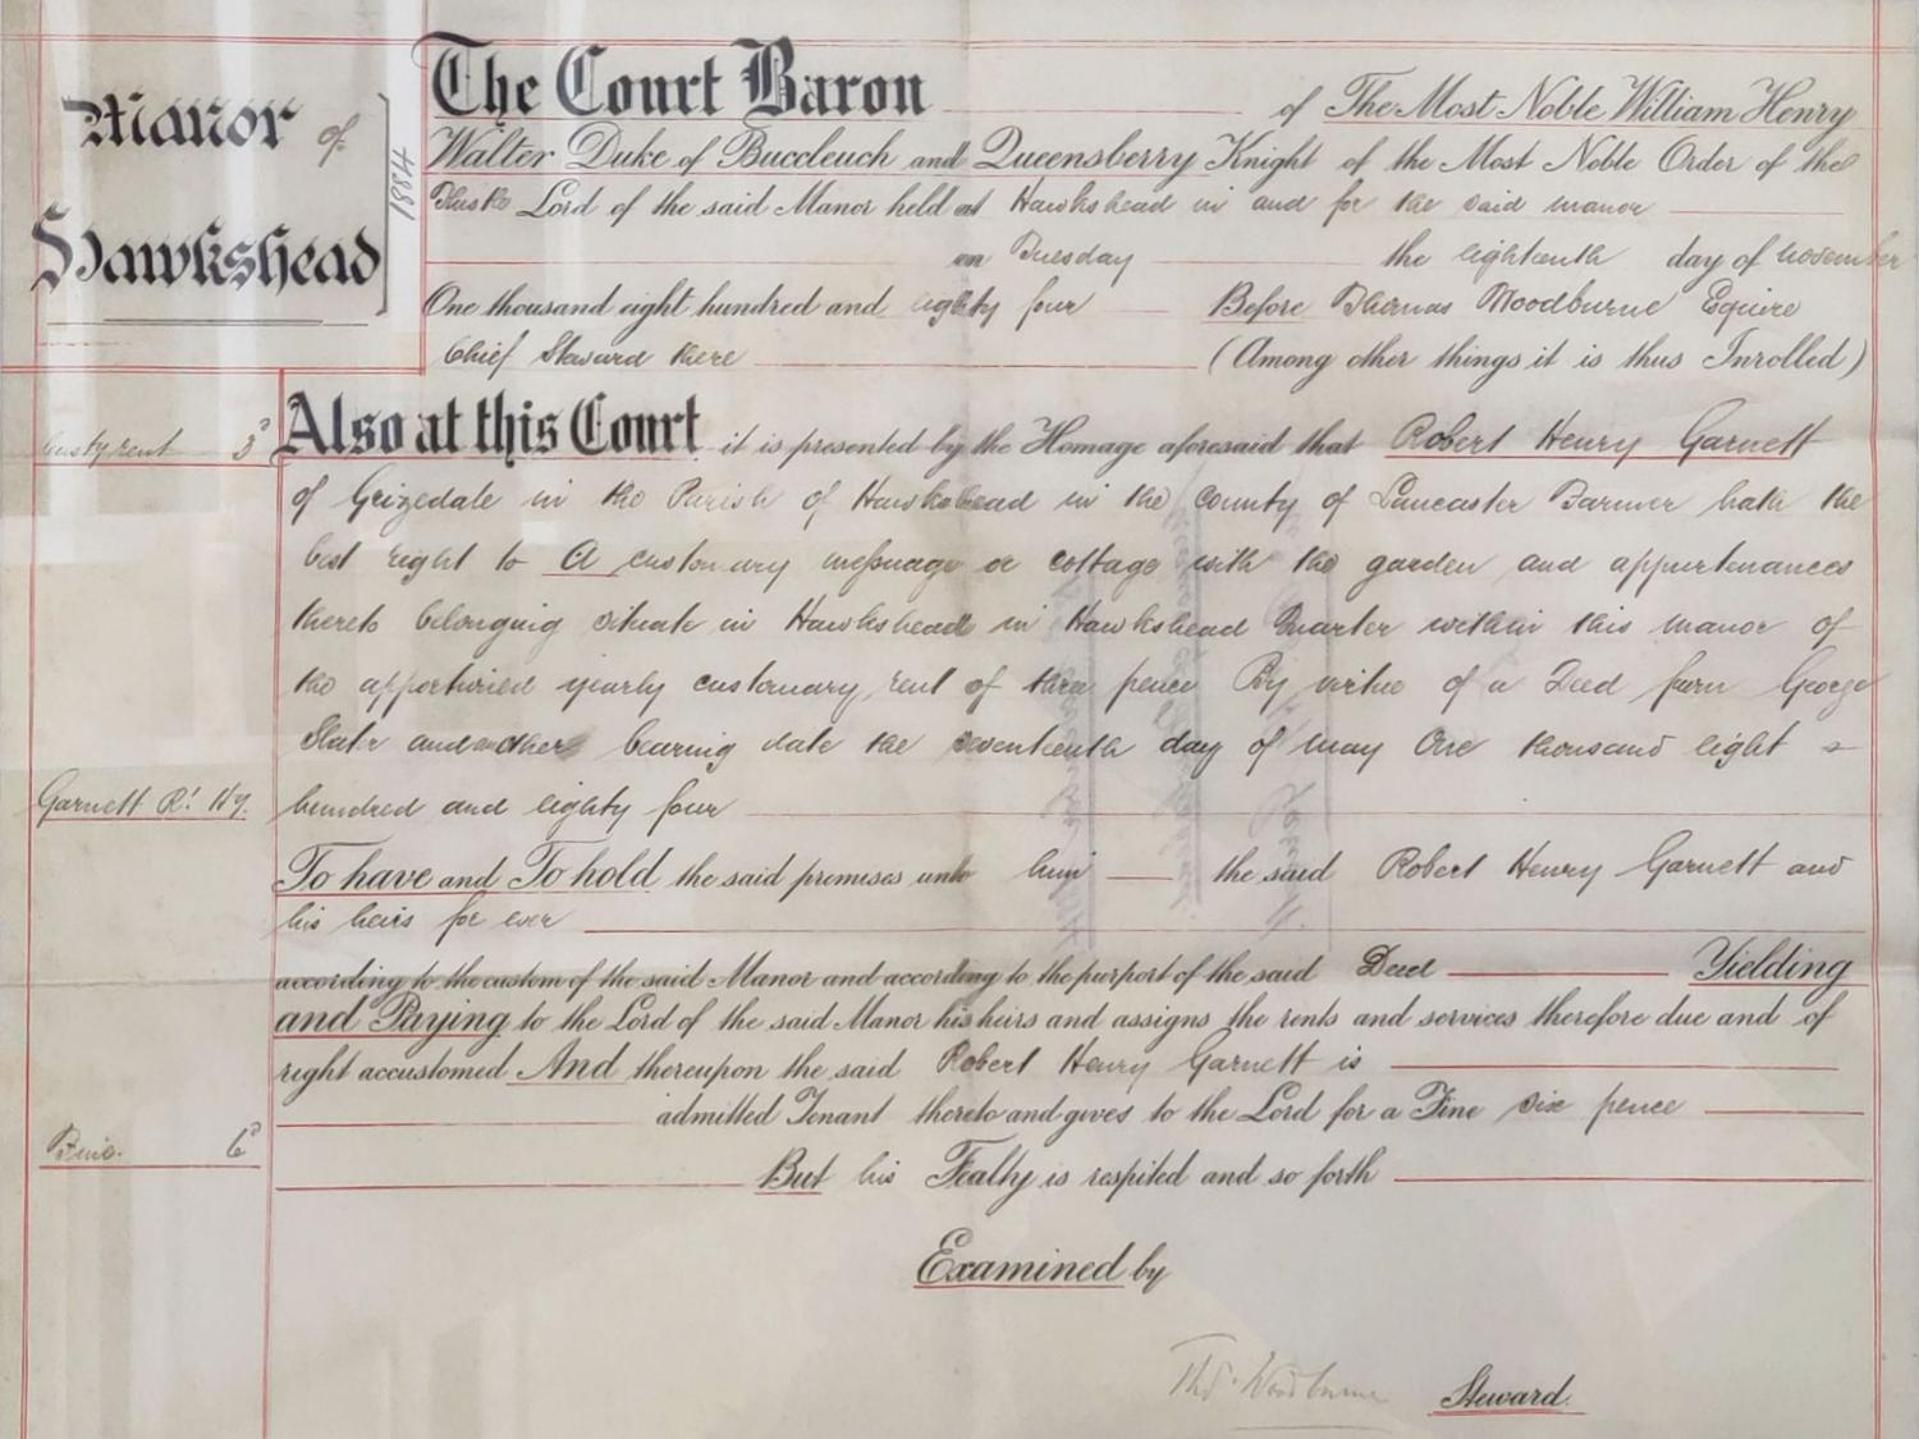 Manor of
Hawkshead
1884
The Court Baron of The Most Noble William Henry
Walter Duke of Buccleuch and Queensberry Knight of the Most Noble Order of the
Lord of the said Manor held at Hawkshead in and for the said manor
on Tuesday the eighteenth day of November
One thousand eight hundred and eighty four Before Thomas Woodburne Esquire
Chief Steward there (Among other things it is thus Inrolled)
Custy rent 3d
Also at this Court it is presented by the Homage aforesaid that Robert Henry Garnett
of Grizedale in the Parish of Hawkshead in the County of Lancaster Farmer hath the
best right to A customary messuage or cottage with the garden and appurtenances
thereto belonging situate in Hawkshead in Hawkshead Quarter within this manor of
the apportioned yearly customary rent of three pence By virtue of a Deed from George
Slater and another bearing date the seventeenth day of may One thousand eight
Garnett Rt Hy.
hundred and eighty four
To have and To hold the said premises unto him the said Robert Henry Garnett and
his heirs for ever
according to the custom of the said Manor and according to the purport of the said Deed Yielding
and Paying to the Lord of the said Manor his heirs and assigns the rents and services therefore due and of
right accustomed And thereupon the said Robert Henry Garnett is
admitted Tenant thereto and gives to the Lord for a Fine six pence
Fine. 6d
But his Fealty is respited and so forth
Examined by
Thos. Woodburne Steward.